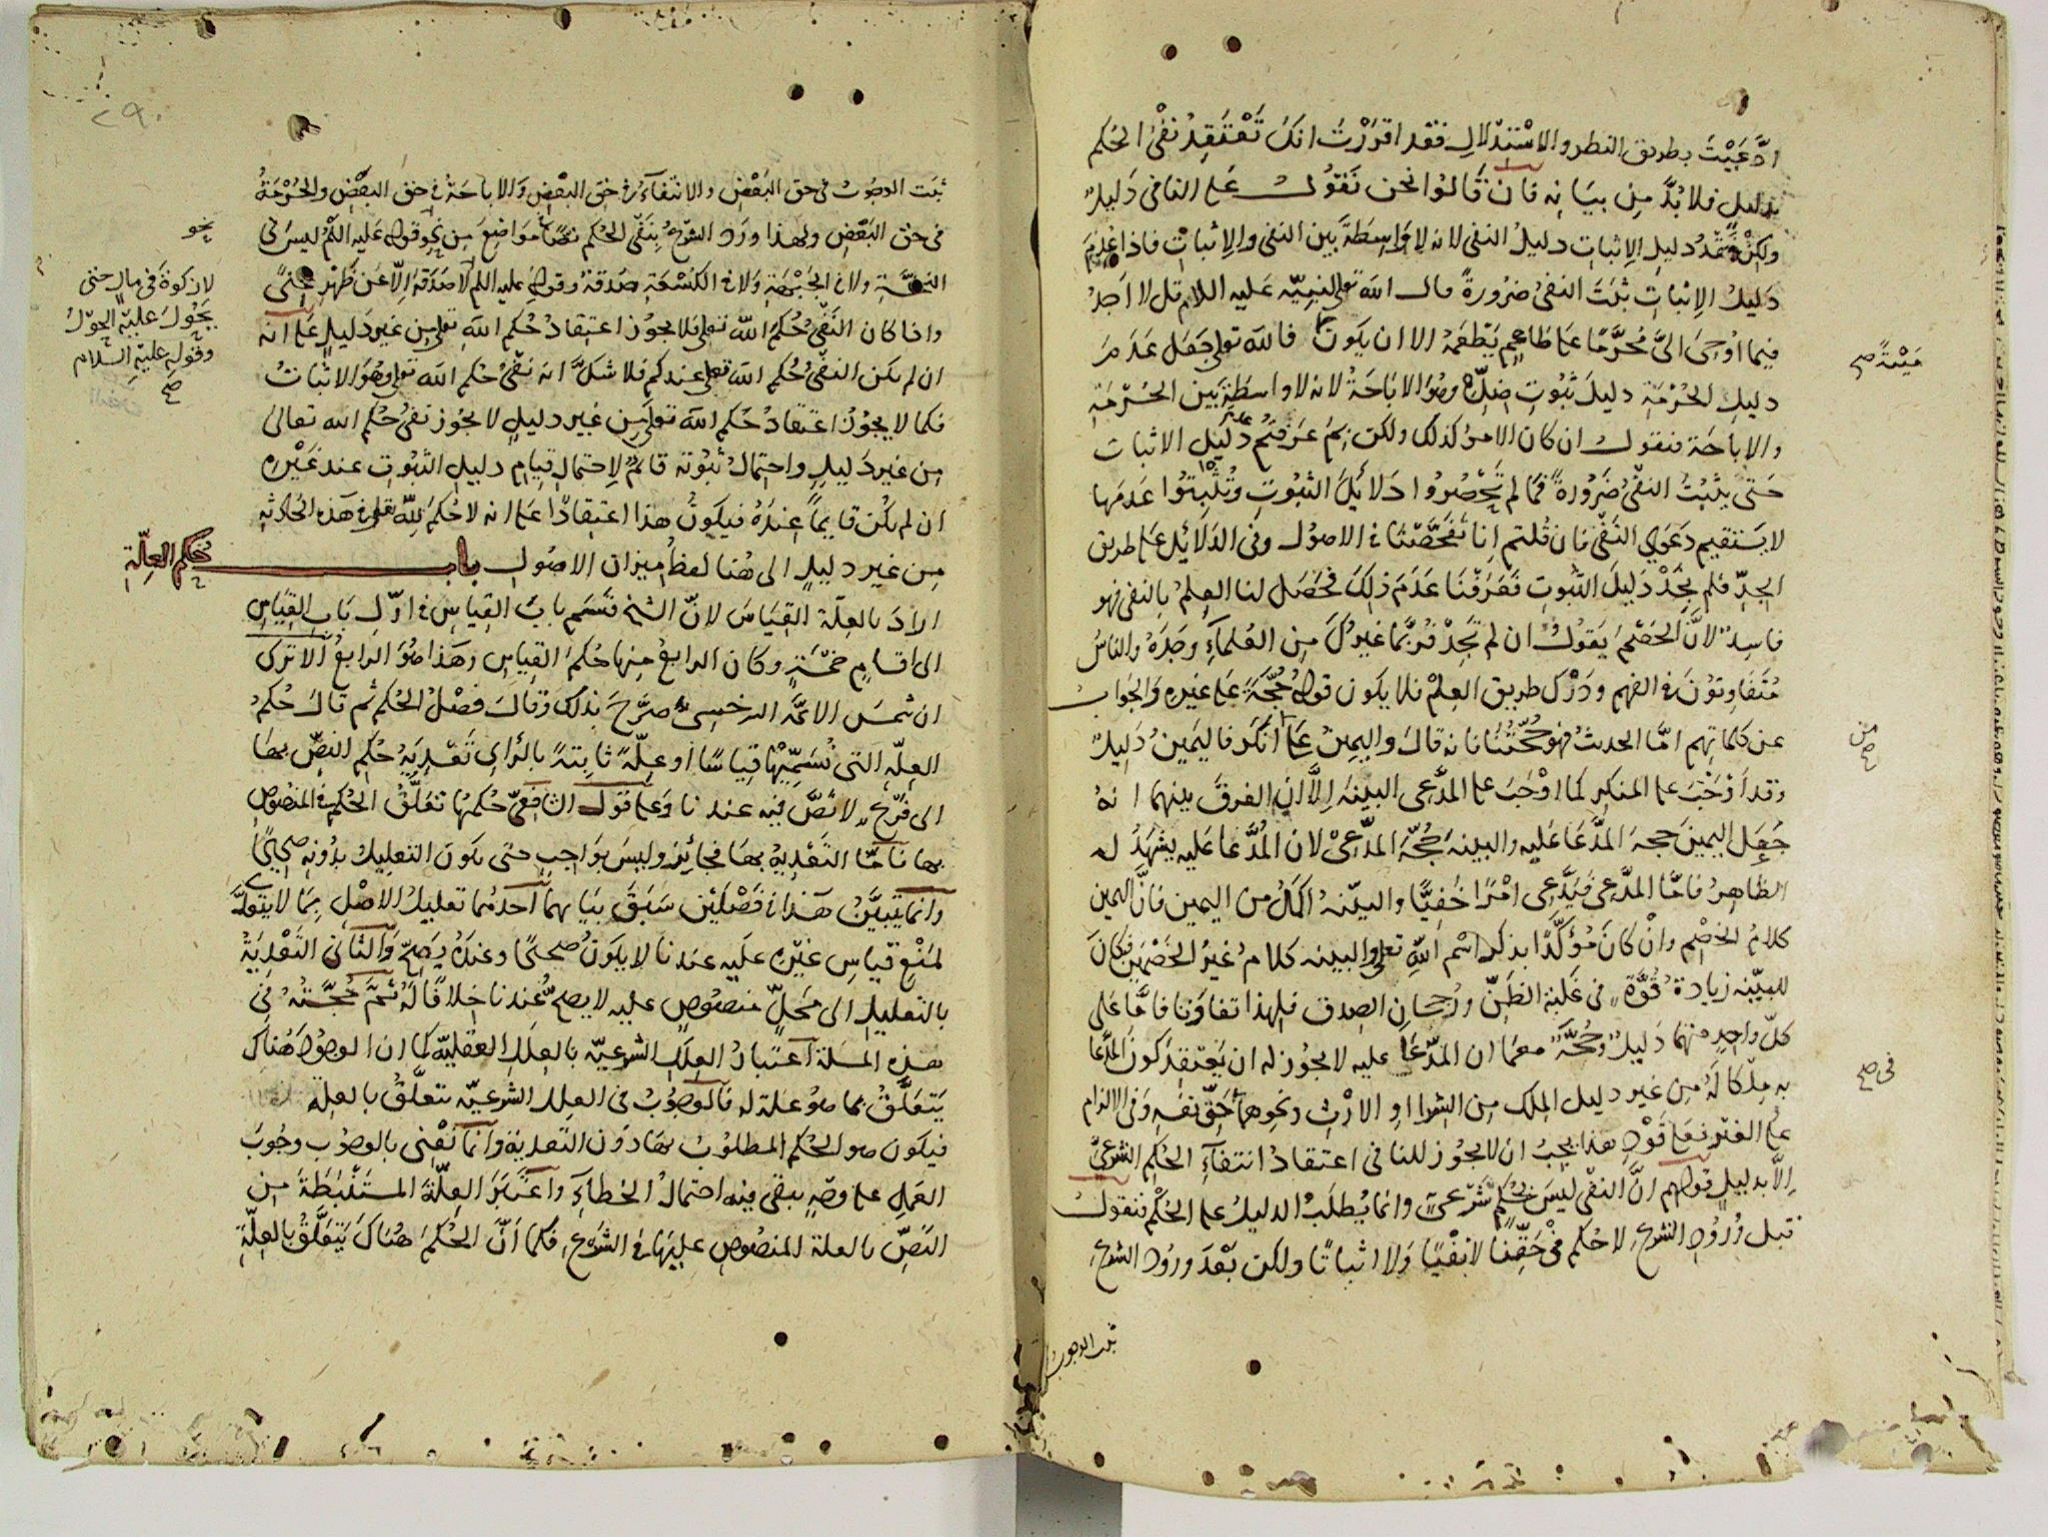 ادَّعَيْتَ بطريق النظر والاسْتِدْلالِ فقد اقرَرْتَ انكَ تَعْتَقِدُ نَفْىَ الحُكم
بدليلٍ فلا بُدَّ مِن بيَانِه فان قَالوُا نحن نَقوُل عَلى النافى دَليلٌ
ولكِنْ عَدَمُ دليلِ الإثباتِ دليلُ النفى لانه لا وَاسِطَةَ بين النفى والإثباتِ فاذا عُدِمَ
دَليلُ الإثباتِ ثبَتَ النفىُ ضرُورةً قال الله تعلى لنبيّه عَليه السلام قل لا اَجِدُ
فيما اوُحِىَ الىَّ مُحَرَّمًا على طَاعِمٍ يَطْعَمُهُ الا ان يكون فالله تعلى جَعَل عَدَمَ
دليلِ الحُرْمَةِ دليلَ ثبُوتِ ضِدِّهِ وهُوَ الاباحَةُ لانه لا واسطَةَ بين الحُرْمَةِ
والاباحَة فنقول ان كان الامرُ كذلك ولكن بِمَ عَرَفتُم عَدَمَ دليل الاثبات
حَتى يثبُتَ النفىُ ضَرُورةً فما لم تَحْصُروُا دَلايُلَ الثبُوتِ وتُثبِتوُا عَدَمهَا
لا يَسْتقيم دَعْوَى النَفْى فان قُلتم اِنا تَفَحَّصْنا فى الاصوُل وفى الدَلائِل على طريق
الجِدِّ فلم نَجِدْ دَليلَ الثبُوتِ فَعَرَفْنَا عَدَمَ ذلِكَ فحَصَل لنا العِلمُ بالنفى فهو
فاسِدٌ لانَّ الخَصْمَ يَقوُلُ ان لم تَجِدْ فرُبَّمَا غيرُكَ مِن العُلماءِ وجَدَهُ والناسُ
مُتَفَاوِتوُنَ فى الفهمِ ودَرْكِ طريق العِلْم فلا يكون قولُهُ حُجَّةً عَلى غيره وَالجَواب
عن كلماتِهم امَّا الحديثُ فهو حُجّتُنَا فانه قالَ واليمينُ عَلى انكَرَ فاليَمينُ دَليلٌ
وقد اَوْجَبَ على المنكِرِ كما اوْجَبَ على المدَّعى البينَة اِلّا انّ الفرقَ بينهما انهُ
جَعَل اليمينَ حجة المدَّعَا عَليه والبينة حُجّة المدَّعىْ لان المُدَّعا عليه يشهَدُ له
الظاهِرُ فامَّا المدَّعى فيَدَّعى امْرًا خفِيًّا والبيّنة اكمَلُ من اليمين فانَّ اليمين
كلامُ الخصْم وانْ كانَ مُؤَكَّدًا بذكر اسْمِ الله تعلى والبينة كلامُ غيرُ الخَصْمَين فكانَ
للبيّنة زيادةُ قُوَّةٍ فى غَلَبة الظنّ ورُجحانِ الصِدق فلهذا تفاوَتا فامَّا عَلى
كلّ واحِدٍ منهما دَليلٌ وحُجَّةٌ معمَا ان المدَّعَا عليه لا يجوُز له ان يَعتقِدَ كونَ المدَّعَا
به مِلكًا لَهُ مِن غير دليل المِلك مِن الشراا او الارْثِ ونحوِهما حقّ نفسه وَفى الالزام
عَلى الغَيْر فَعَلى قَوْدِ هذا يَجِبُ ان لا يجوُز للنافى اعتقادُ انتفآءِ الحُكمِ الشرعىِّ
اِلّا بدليلٍ قوُلهم انّ النفىَ ليسَ بحُكمٍ شَرْعىٍّ وانما يُطلَبُ الدليلُ على الحُكْمِ فنقول
قبل وُرُوُدِ الشرعِ لا حُكم فى حَقِّنا لا نَفْيًا وَلا اثباتًا ولكن بَعْدَ ورُوُد الشرعِ
ثبت الوجوب
مَيْتةً صح
مَن صح
فى صح
ثبَت الوجُوبُ فى حق البَعْضِ والانتفآءُ فى حَق البَعْضِ وَالاباحَةُ فى حَق البَعْضِ والحُرْمَةُ
فى حق البَعْضِ ولهذا ورَدَ الشرعُ بِنفْى الحُكمِ نصًّا فى مَوَاضِعَ مِن نحو قولِه عَليه اللم ليسَ فى
النخّة ولا فى الجَبْهَةِ وَلا فى الكُسْعَةِ صَدَقةٌ وقوله عليه اللم لا صَدَقَة اِلّا عَن ظَهْرِ غِنىً
واذا كان النَفْىُ حُكمَ اللهِ تعلى فلا يجوُز اعتقادُ حُكم اللهِ تعلى مِن غير دَليلٍ على انه
ان لم يكن النفىُ حُكمَ الله تعلى عندكم فلا شكَّ انه نفىُ حُكمِ الله تعلى وهُوَ الاثباتُ
فكما لا يجُوُزُ اعتقادُ حُكم الله تعلى مِن غير دليلٍ لا يجوُز نفىُ حُكمِ الله تعالى
مِن غير دَليلٍ واحتمالُ ثبُوُته قائمٌ لاِحتمالِ قيامِ دليلِ الثبُوتِ عند غيْرِه
ان لم يكُن قايمًا عِندَهُ فيكونُ هذا اعتِقادًا على انه لا حُكمَ للهِ تعلى فى هَذه الحَادثةِ
مِن غير دليلٍ الى هُنا لفظُ ميزان الاصُول بابُ حُكم العِلّةِ
ارادَ بالعِلّة القِيَاسَ لانّ الشيخ قسَّم بابَ القِياسِ فى اوّلِ بَابِ القِيَاسِ
الى اقسامٍ خمسَةٍ وكان الرابعُ مِنها حُكمَ القِياسِ وهَذا هُوَ الرابعُ الا ترَى
ان شمسَ الائمّة السرخسىّ صرَّحَ بذلك وَقالَ فصْلُ الحُكم ثم قالَ حُكمُ
العِلّةِ التى نُسَمِّيْهَا قيَاسًا او عِلّةً ثابِتةً بالرَاىِ تَعْدِيَةُ حُكمِ النصِّ بهَا
الى فرْعٍ لا نَصَّ فيه عندنا وَعلى قول الشافعىّ حُكمُهَا تعَلّقُ الحُكمِ فى المنصُوصِ
بها فامّا التَعْدِيةُ بها فجائِزٌ وليسَ بوَاجِبٍ حتى يكون التعليلُ بدُونه صحيحًا
وَانما يتَبيَّنُ هَذا فى فَصْلَيْن سَبَقَ بيَانهما اَحَدُهما تعليلُ الاصْلِ بِمَا لا يتَعَدّى
لمَنْعِ قياسِ غيْرِه عليه عندنا لا يكونُ صحيحًا وعندَهُ يَصِحُّ والثانى التَعْدِيَةُ
بالتعليلِ الى مَحَلٍّ منصُوصٍ عليه لا يصحُّ عندنا خِلافًا لَهُ ثمَّ حُجَّتُهُ فى
هذه المسَلة اعتبارُ العِلَلِ الشرعيّة بالعِلَل العقليّة كما ان الوجُودَ هُناكَ
يَتَعَلَّقُ بما هوُ عِلة له فالوجُوُبُ فى العِلل الشرعيّة يتعَلَّقُ بالعلة
فيكون هو الحُكم المطلوُبُ بهَا دوُن التَعدِيةِ وَانما نَعْنى بالوجوُب وجُوبَ
العَمَلِ على وجْهٍ يبقى فيه احتمالُ الخطاَءِ واعْتَبَرَ العِلّةَ المستَنْبَطَة مِن
النَصِّ بالعلة المنصُوصِ عليها فى الشَرْعِ، فكما اَنّ الحُكمَ هُناكَ يَتعَلَّقُ بالعِلّةِ
٢٩٠
نحو
لا زكوةَ فى مالٍ حتى
يَحُوُل عليْه الحَوْلُ
وقولِه عليْه السلام
صح